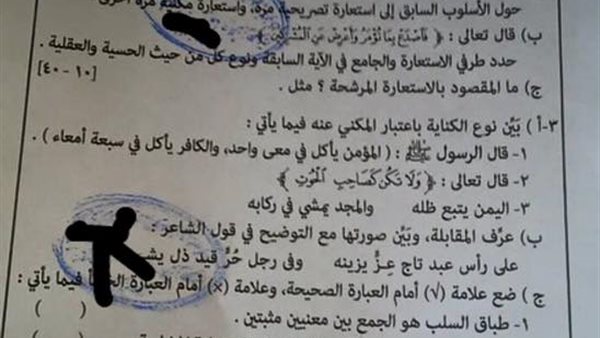 حول الأسلوب السابق إلى استعارة تصريحية مرة، واستعارة مكنية مرة أخرى
ب) قال تعالى : ﴿ فَاصْدَعْ بِمَا تُؤْمَرُ وَأَعْرِضْ عَنِ الْمُشْرِكِينَ ﴾
حدد طرفي الاستعارة والجامع في الآية السابقة ونوع كل من حيث الحسية والعقلية .
ج) ما المقصود بالاستعارة المرشحة ؟ مثل . [١٠ - ٤٠]
٣-أ ) بَيِّن نوع الكناية باعتبار المكني عنه فيما يأتي :
١- قال الرسول ﷺ : ( المؤمن يأكل في معى واحد، والكافر يأكل في سبعة أمعاء ) .
٢- قال تعالى : ﴿ وَلَا تَكُن كَصَاحِبِ الْحُوتِ ﴾
٣- اليمن يتبع ظله والمجد يمشي في ركابه
ب) عرِّف المقابلة، وبَيِّن صورتها مع التوضيح في قول الشاعر :
على رأس عبد تاج عِزٍّ يزينه وفى رجل حُرٍّ قيد ذل
ج ) ضع علامة (√) أمام العبارة الصحيحة، وعلامة (×) أمام العبارة فيما يأتي :
١- طباق السلب هو الجمع بين معنيين مثبتين . ( )